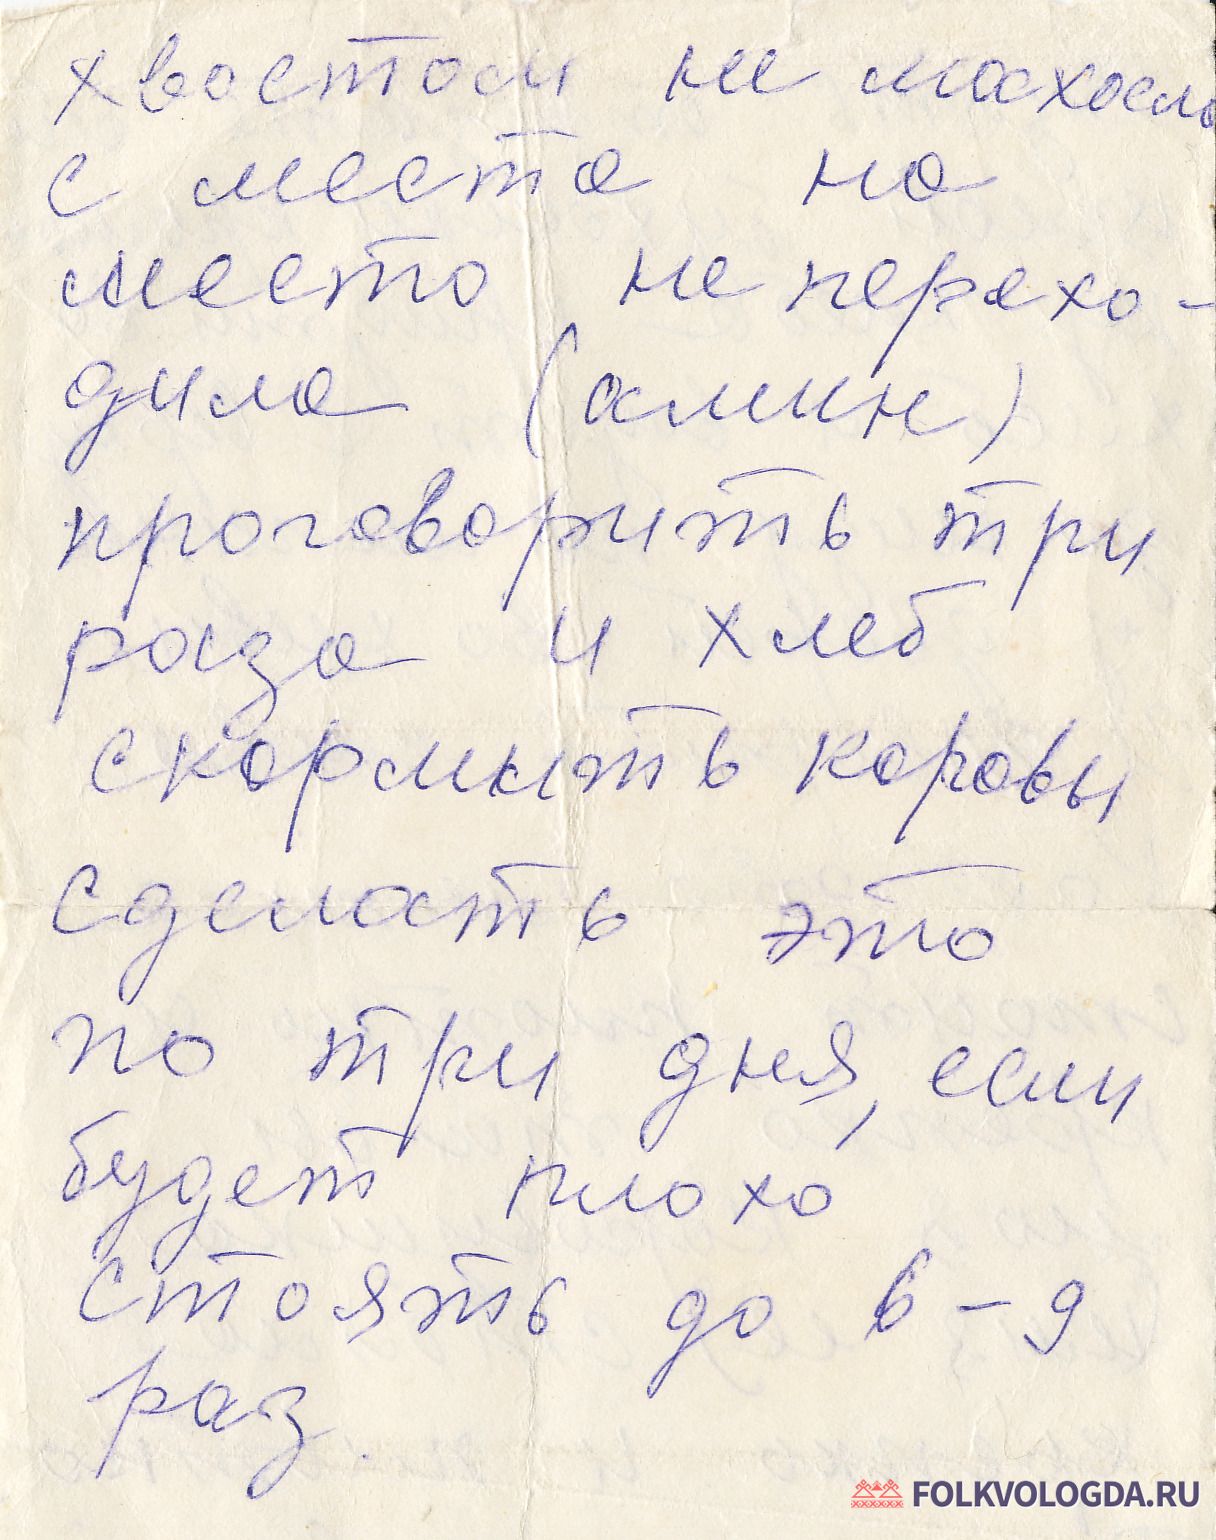 хвостом не махала
с места на
место не перехо-
дила (аминь)
проговорить три
раза и хлеб
скормить коровы
сделать это
по три дня, если
будет плохо
стоять до 6-9
раз.
FOLKVOLOGDA.RU